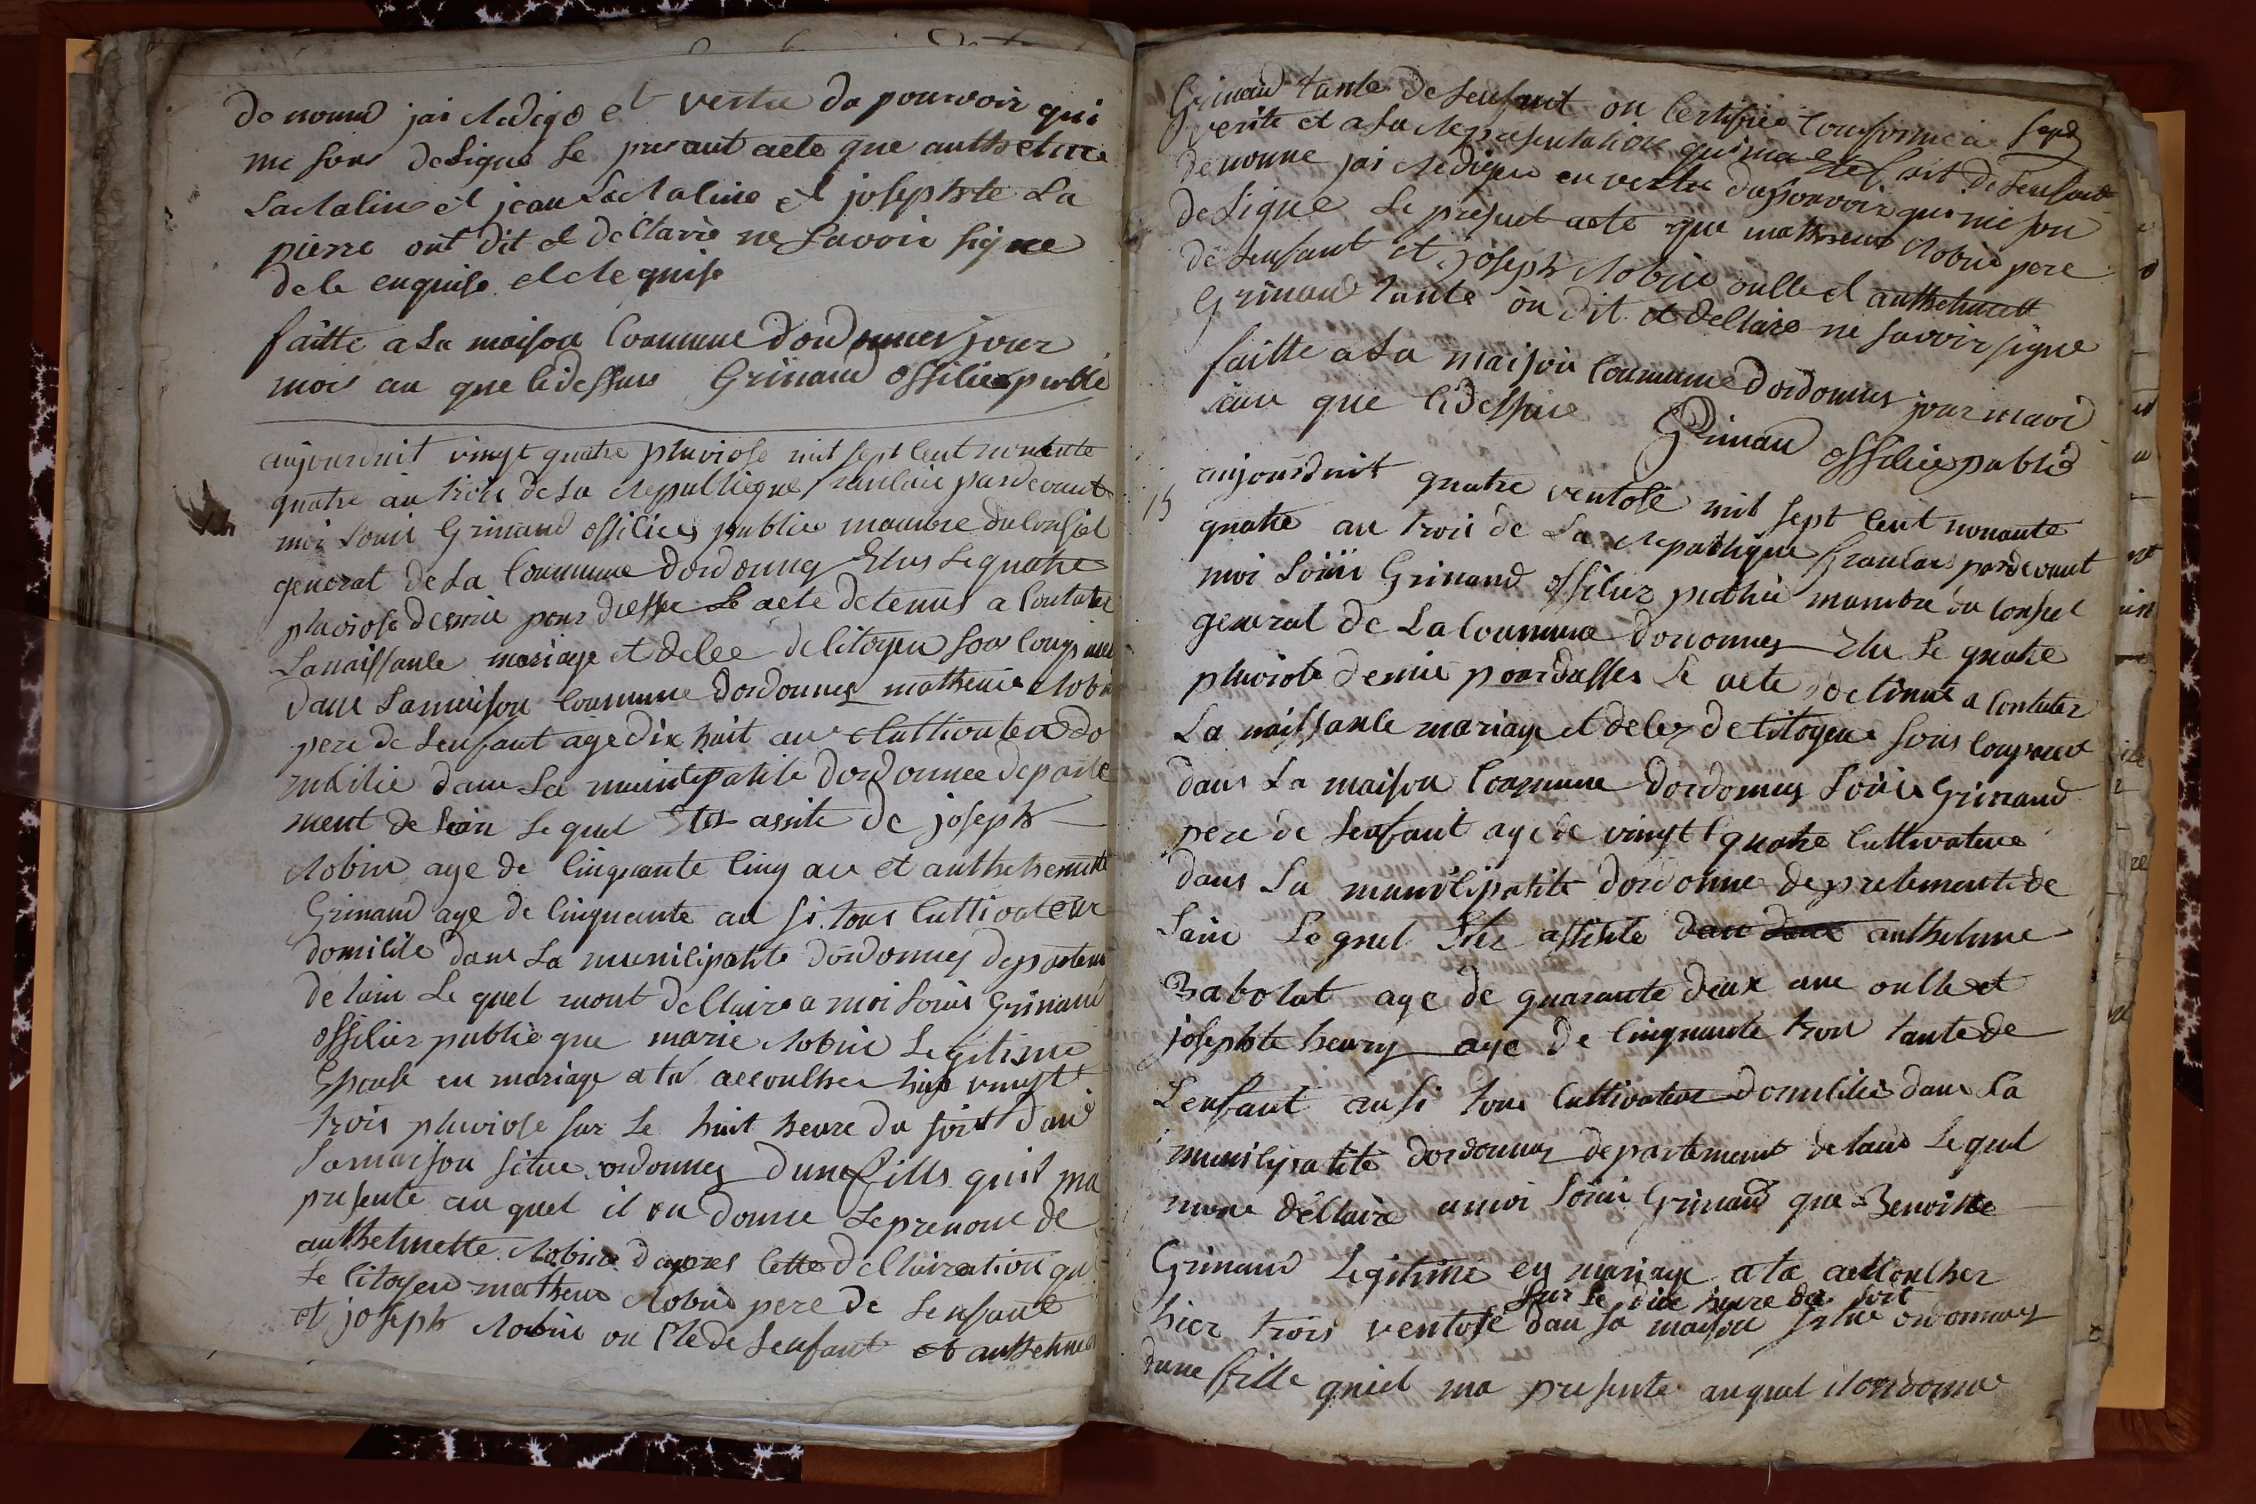 de nomme jai Redige et vertu du pouvoir qui
me sons desigue le presant acte que anthelme
Lactaline et jean Lactaline et josephte La
pierre ont dit et dellaire ne savoir signe
de le enquise et le quise
faitte a la maison Commune dordonnes jour
mois an que lidessus Grinand offilier publi
aujourduit vingt quatre pluviose mil sept cent nonente
quatre an trois de La Republique pardevant
moi Louis Grinand offilies publie mambre du Consiel
general de La Commune dordonney Elus le quatre
pluviose dernie pour dresse Le acte detenus a Contater
La naissanle mariage et delee de litoyen sons lougnieu
dans La maison Commune dordonney mathieu Robin
pere de Lenfant age dix huit an Cultivateur do
milie dans La muniepatite dordonnee departe
ment de Lain Le quel Etes assite de joseph
Robin age de linquante linq an et anthelmette
Grinand age de linquante an si tous Cultivateur
domilile dans La munilipatite dordonney departem
de lain Le quel mont dellaire a moi Louis Grinand
offilier publie que marie Robin Legitisme
Epouse en mariage ata accoulher hier vingt
trois pluviose sur Le huit heure du soirt dans
La maison situe ordonney dune fille quil ma
presente au quel il on donne Le prenom de
anthelmette Robine dapres lette dellairation que
le litoyen mathieu Robin pere de lenfant
et joseph Robin on Cle de Lenfant et anthelmet
Grinand tante de lenfant on Certifiee Conforme a
sept
verite et a La Representation qui ma Ete fait de Lenfant
de nomme jai Redigee en vertu du pouvoir qui me son
desigue Le present acte que mathieu Robin pere
de Lenfant et joseph Robin onlle et anthelmett
Grinand tante on dit et dellaire ne savoir signe
faitte a La maison Commune dordonney jour mavi
ans que lidessus
Grinan offilier publie
15
aujourduit quatre ventose mil sept Cent nonante
quatre an trois de La Republique francaise pardevant
moi Louis Grinand offilier publie mambre du Consiel
general de La Commune dordonney Elu le quatre
pluviote dernie pour dresser Le acte detenue a Contater
La naissanle mariage et delez de litoyens sons lougnieu
dans La maison Commune dordonney Louis Grinand
pere de Lenfant age de vingt quatre Cultivateur
dans La munilipatite dordonne depretemente de
Lain Le quel Etez assiste dans deux anthelme
Rabolat age de quarante deux ans onlle et
josephte henry age de linquante trois tante de
Lenfant ausi tous Cultivateur domilies dans La
munilipatite dordonney departement de lain Le quel
mont dellaire a moi Louis Grinand que Benoitte
Grinand Legitime en mariage ata accoulher
sur Le dix heure du soit
hier trois ventose dan sa maison situe ordonney
dune fille quiel ma presente auquel il on donne